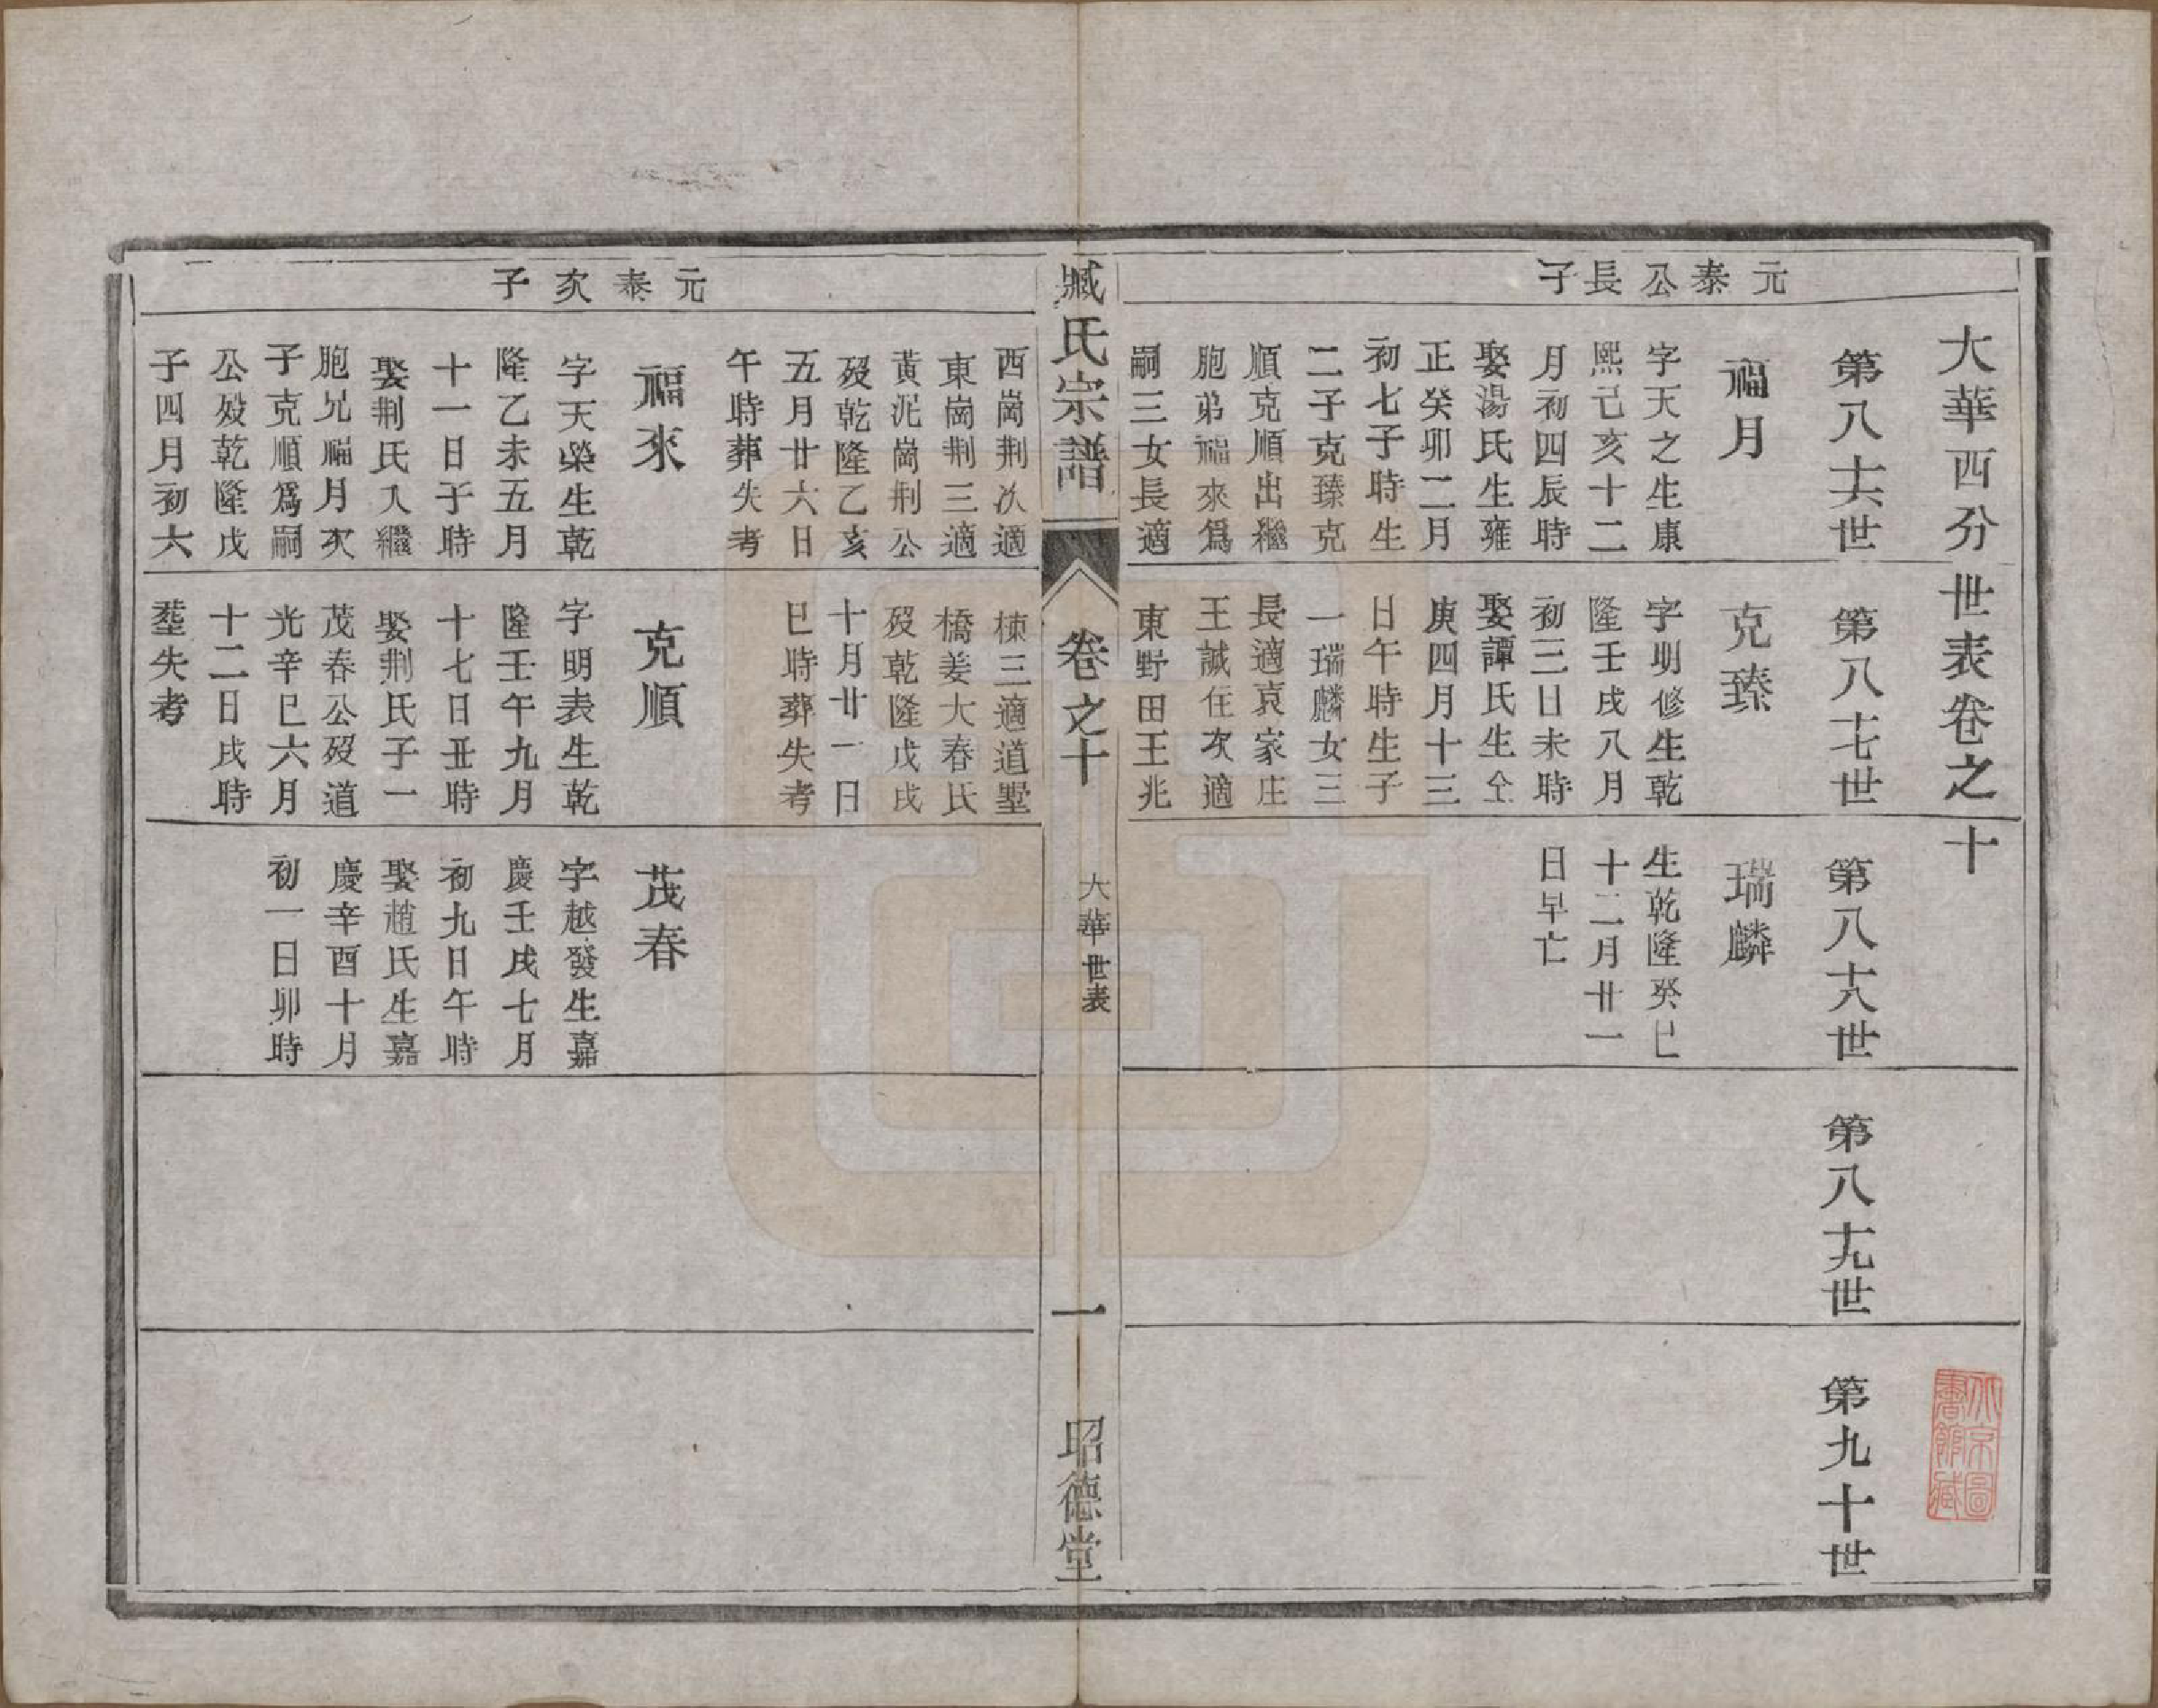 大華西分世表卷之十
第八十六世
第八十七世
第八十八世
第八十九世
第九十世
元泰公長子
福月
字天之生康
熙己亥十二
月初四辰時
娶湯氏生雍
正癸卯二月
初七子時生
二子克臻克
順克順出繼
胞弟福來爲
嗣三女長適
西崗荆次適
東崗荆三適
黃泥崗荆公
歿乾隆乙亥
五月廿六日
午時葬失考
克臻
字明修生乾
隆壬戌八月
初三日未時
娶譚氏生仝
庚四月十三
日午時生子
一瑞麟女三
長適袁家庄
王誠住次適
東野田王兆
棟三適道墅
橋姜大春氏
歿乾隆戊戌
十月廿一日
巳時葬失考
瑞麟
生乾隆癸巳
十二月廿一
日早亡
臧氏宗譜
卷之十
大華世表
一
昭德堂
元泰次子
福來
字天榮生乾
隆乙未五月
十一日子時
娶荆氏入繼
胞兄福月次
子克順爲嗣
公歿乾隆戊
子四月初六
克順
字明表生乾
隆壬午九月
十七日丑時
娶荆氏子一
茂春公歿道
光辛巳六月
十二日戌時
塟失考
茂春
字越發生嘉
慶壬戌七月
初九日午時
娶趙氏生嘉
慶辛酉十月
初一日卯時
北京圖
書館藏